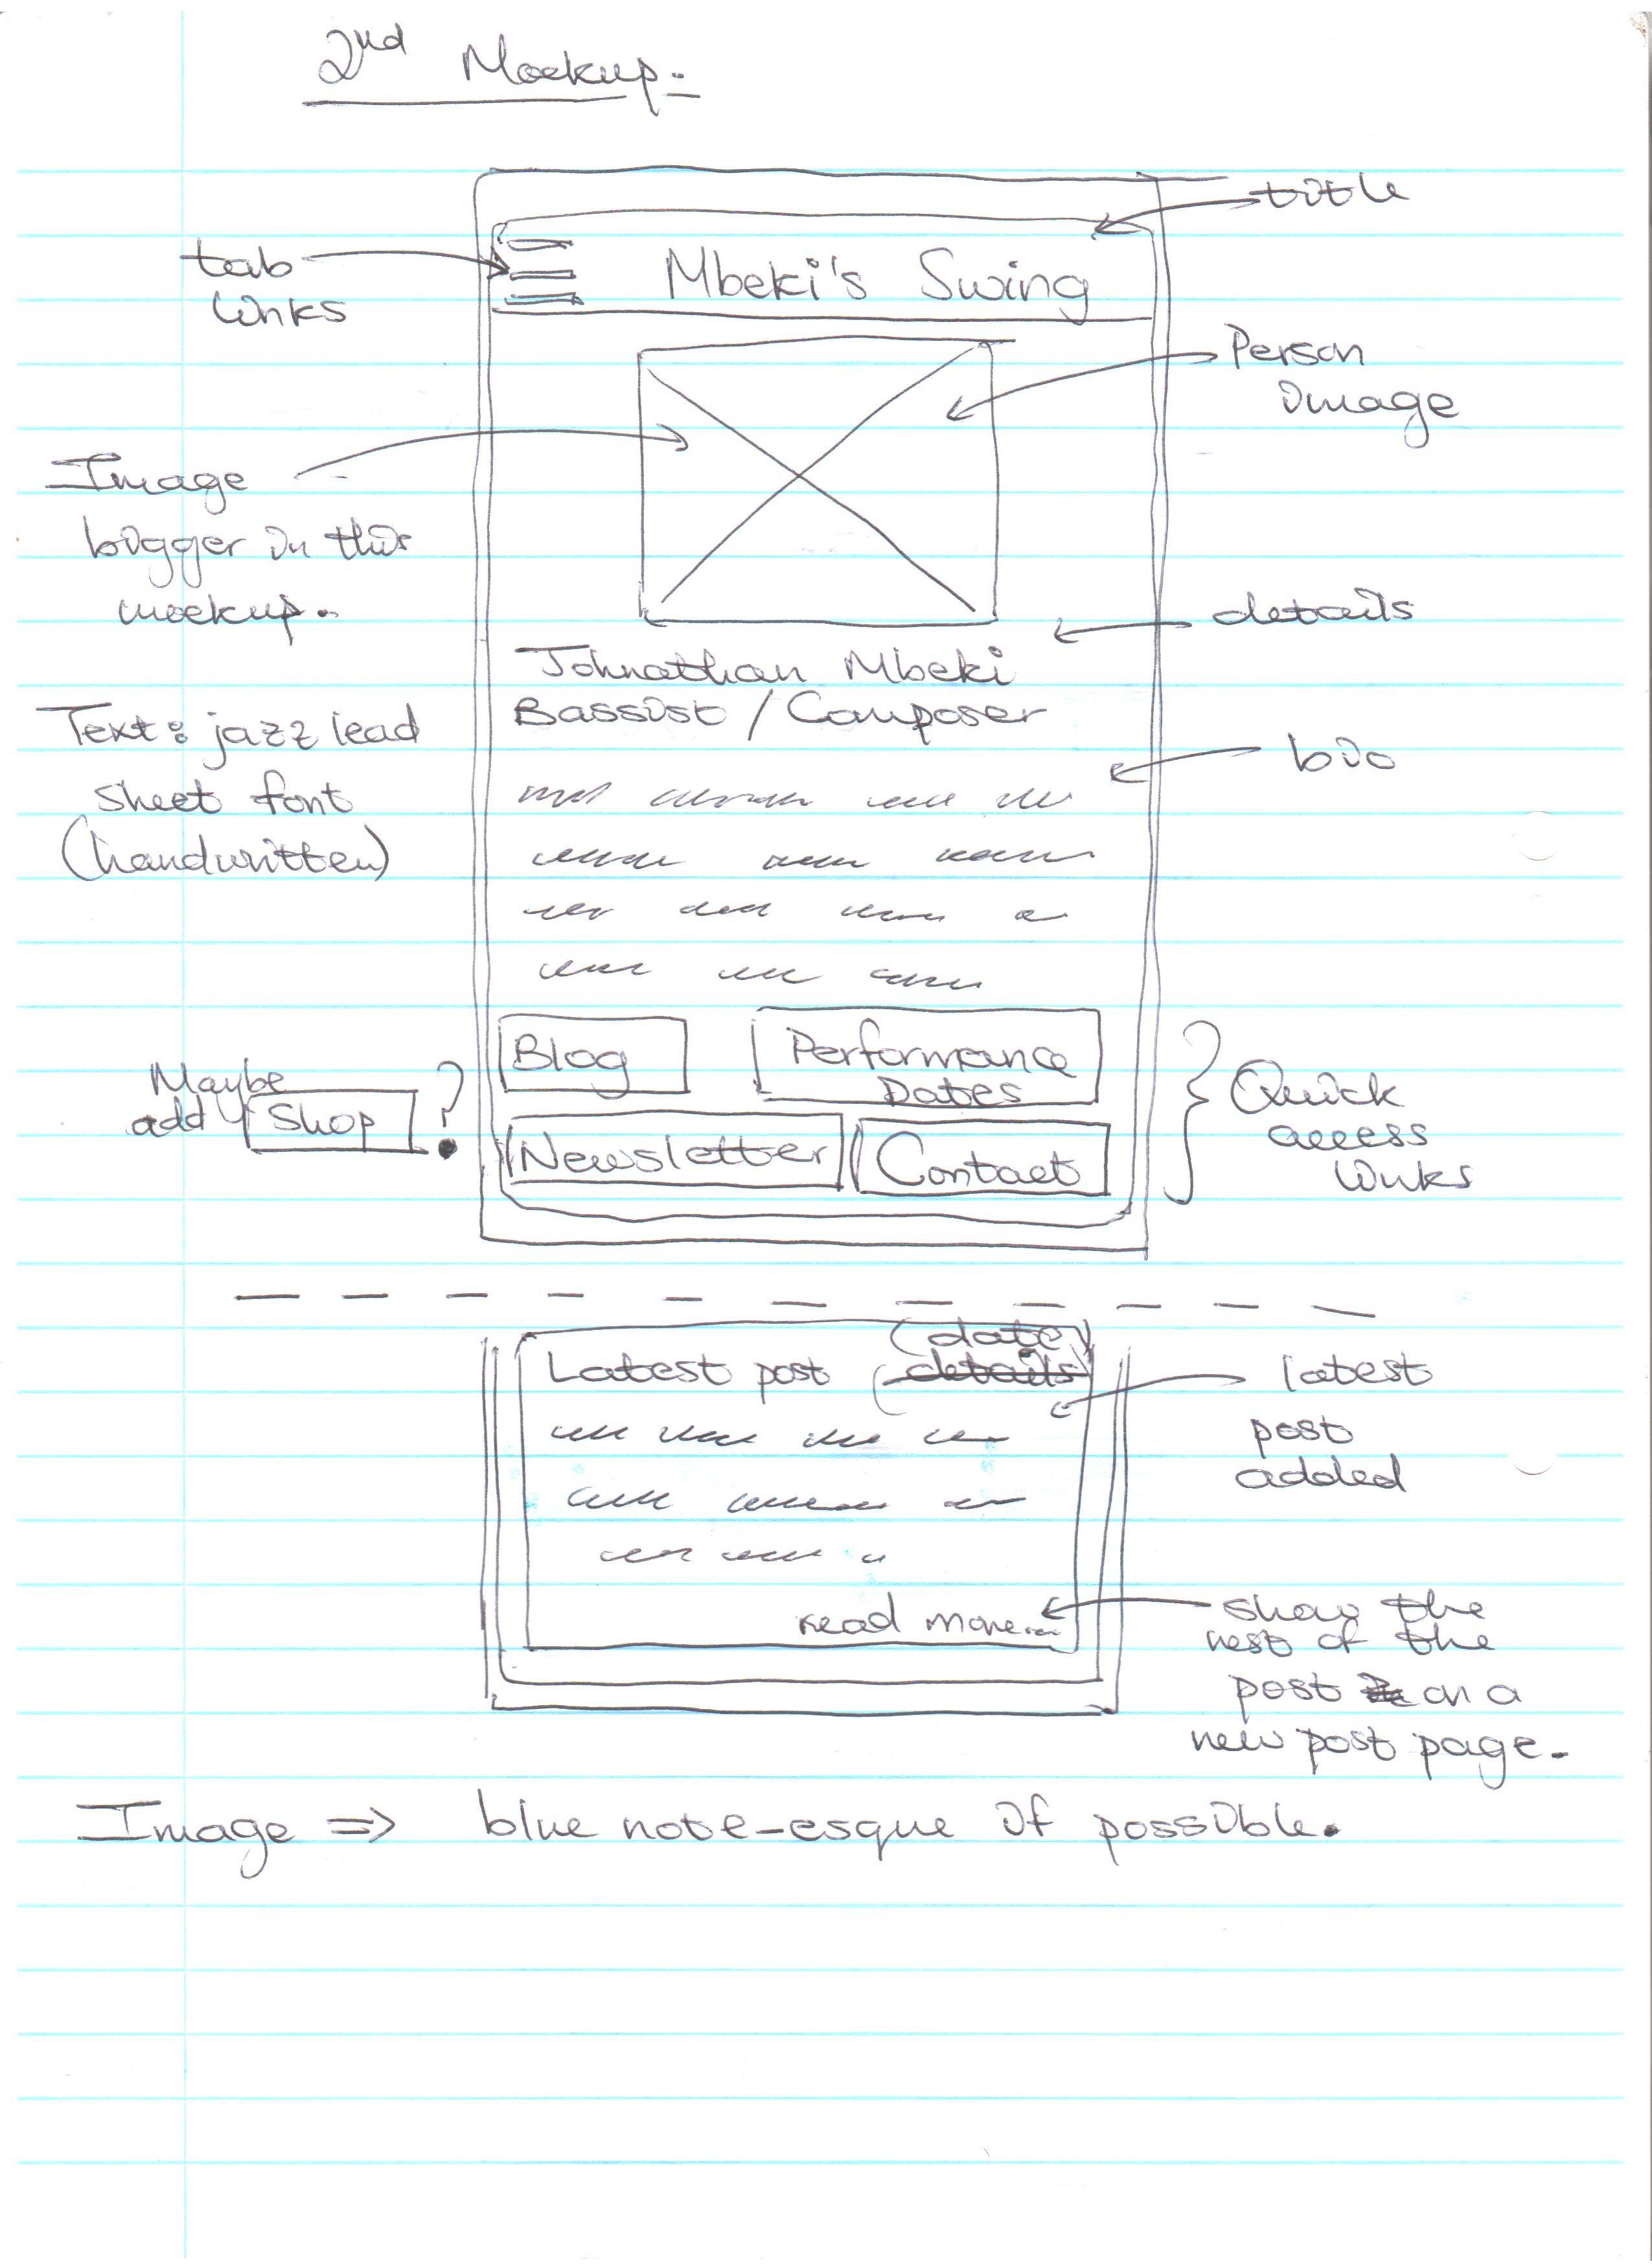 2nd Mockup.
title
tab
links
Mbeki's Swing
Person
image
Image
bigger in this
mockup.
details
Johnathan Mbeki
Bassist / Composer
Text: jazz lead
sheet font
(handwritten)
bio
Blog
Performance
Dates
Maybe
add Shop ?
Newsletter
Contact
Quick
access
links
(date)
Latest post (details
latest
post
added
read more...
show the
rest of the
post on a
new post page.
Image => blue note-esque if possible.